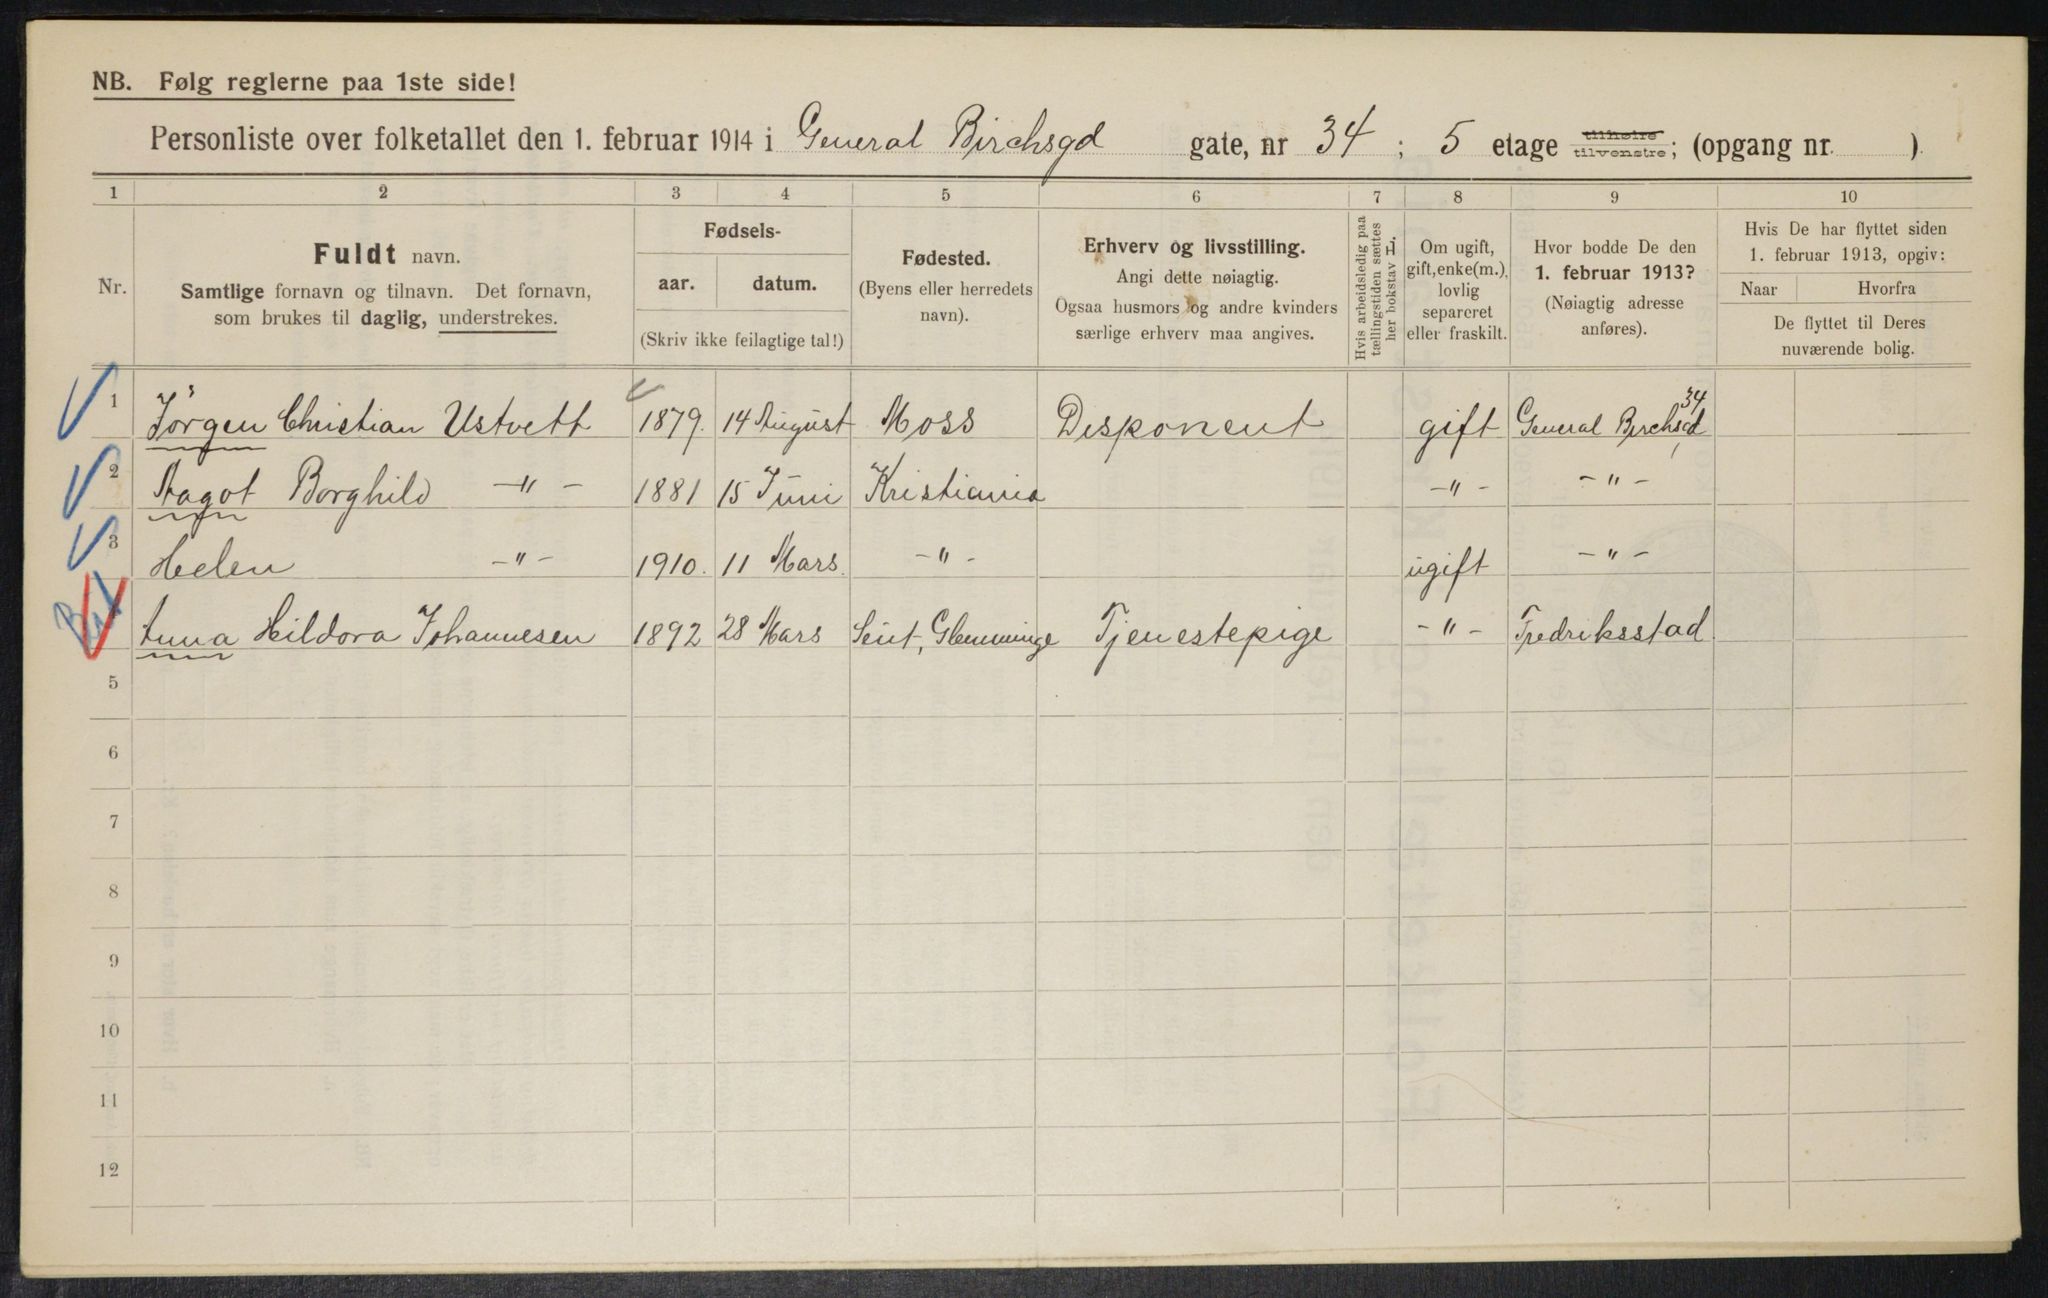 NB. Følg reglerne paa 1ste side!
Personliste over folketallet den 1. februar 1914 i General Birchsgd gate, nr 34; 5 etage tilhøire tilvenstre; (opgang nr. ).
1 2 3 4 5 6 7 8 9 10
Nr.
Fuldt navn.
Samtlige fornavn og tilnavn. Det fornavn,
som brukes til daglig, understrekes.
Fødsels-
aar. datum.
(Skriv ikke feilagtige tal!)
Fødested.
(Byens eller herredets
navn).
Erhverv og livsstilling.
Angi dette nøiagtig.
Ogsaa husmors og andre kvinders
særlige erhverv maa angives.
Hvis arbeidsledig paa
tællingstiden sættes
her bokstav L.
Om ugift,
gift, enke(m.),
lovlig
separeret
eller fraskilt.
Hvor bodde De den
1. februar 1913?
(Nøiagtig adresse
anføres).
Hvis De har flyttet siden
1. februar 1913, opgiv:
Naar Hvorfra
De flyttet til Deres
nuværende bolig.
1 Jörgen Christian Ustvett 1879. 14 August Moss Disponent gift General Birchsgd 34
2 Aagot Borghild -"- 1881 15 Juni Kristiania -"- -"-
3 Helen -"- 1910. 11 Mars. -"- ugift -"-
Anna Hildora Johannesen 1892 28 Mars Glemminge Tjenestepige -"- Fredriksstad
5
6
7
8
9
10
11
12